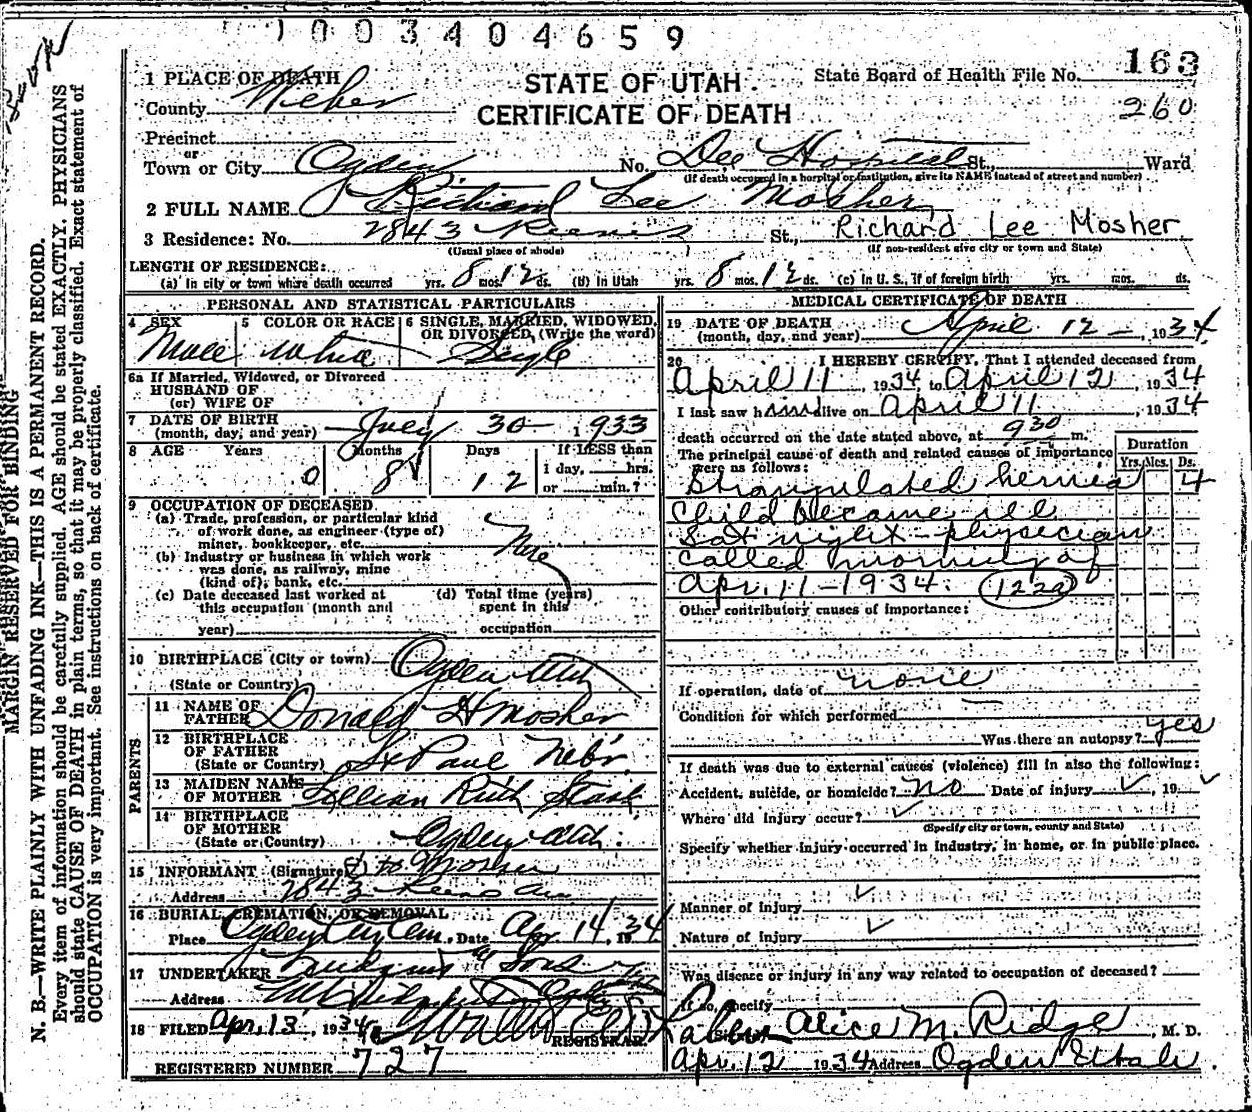 1003404659
163
260
STATE OF UTAH
CERTIFICATE OF DEATH
State Board of Health File No.
1 PLACE OF DEATH
County Weber
Precinct
or
Town or City Ogden No. Dee Hospital St., Ward
(If death occurred in a hospital or institution, give its NAME instead of street and number)
2 FULL NAME Richard Lee Mosher
3 Residence: No. 2843 St., Richard Lee Mosher
(Usual place of abode) (If non-resident give city or town and State)
LENGTH OF RESIDENCE:
(a) In city or town where death occurred yrs. 8 mos. 12 ds. (b) In Utah yrs. 8 mos. 12 ds. (c) In U. S., if of foreign birth yrs. mos. ds.
PERSONAL AND STATISTICAL PARTICULARS
4 SEX 5 COLOR OR RACE 6 SINGLE, MARRIED, WIDOWED, OR DIVORCED, (Write the word)
Male White Single
6a If Married, Widowed, or Divorced
HUSBAND OF
(or) WIFE OF
7 DATE OF BIRTH
(month, day, and year) July 30 1933
8 AGE Years Months Days If LESS than
0 8 12 1 day, hrs.
or min.?
9 OCCUPATION OF DECEASED
(a) Trade, profession, or particular kind
of work done, as engineer (type of)
miner, bookkeeper, etc.
(b) Industry or business in which work
was done, as railway, mine
(kind of), bank, etc.
(c) Date deceased last worked at (d) Total time (years)
this occupation (month and spent in this
year) occupation
10 BIRTHPLACE (City or town) Ogden Utah
(State or Country)
PARENTS
11 NAME OF
FATHER Donald H Mosher
12 BIRTHPLACE
OF FATHER
(State or Country) St Paul Nebr.
13 MAIDEN NAME
OF MOTHER Lillian Ruth
14 BIRTHPLACE
OF MOTHER
(State or Country) Ogden Utah.
15 INFORMANT (Signature) Mosher
Address 2843
16 BURIAL, CREMATION, OR REMOVAL
Place Ogden City Cem. Date Apr 14, 1934
17 UNDERTAKER & Sons
Address Ogden
18 FILED Apr. 13, 1934
REGISTRAR
REGISTERED NUMBER 727
MEDICAL CERTIFICATE OF DEATH
19 DATE OF DEATH
(month, day, and year) April 12, 1934
20 I HEREBY CERTIFY, That I attended deceased from
April 11, 1934 to April 12, 1934
I last saw him alive on April 11, 1934
death occurred on the date stated above, at 9 30 m.
The principal cause of death and related causes of importance
were as follows:
Duration
Yrs. Mos. Ds.
Strangulated hernia 4
Child became ill
Sat night - physician
called morning of
Apr. 11 - 1934.
Other contributory causes of importance:
If operation, date of none
Condition for which performed
Was there an autopsy? yes
If death was due to external causes (violence) fill in also the following:
Accident, suicide, or homicide? no Date of injury ✓, 19 ✓
Where did injury occur? ✓
(Specify city or town, county and State)
Specify whether injury occurred in industry, in home, or in public place.
✓
Manner of injury
✓
Nature of injury
Was disease or injury in any way related to occupation of deceased?
If so, specify
(Signed) Alice M. Ridge, M. D.
Apr. 12 1934 Address Ogden Utah
MARGIN RESERVED FOR BINDING
N. B.—WRITE PLAINLY WITH UNFADING INK—THIS IS A PERMANENT RECORD.
Every item of information should be carefully supplied. AGE should be stated EXACTLY. PHYSICIANS
should state CAUSE OF DEATH in plain terms, so that it may be properly classified. Exact statement of
OCCUPATION is very important. See instructions on back of certificate.